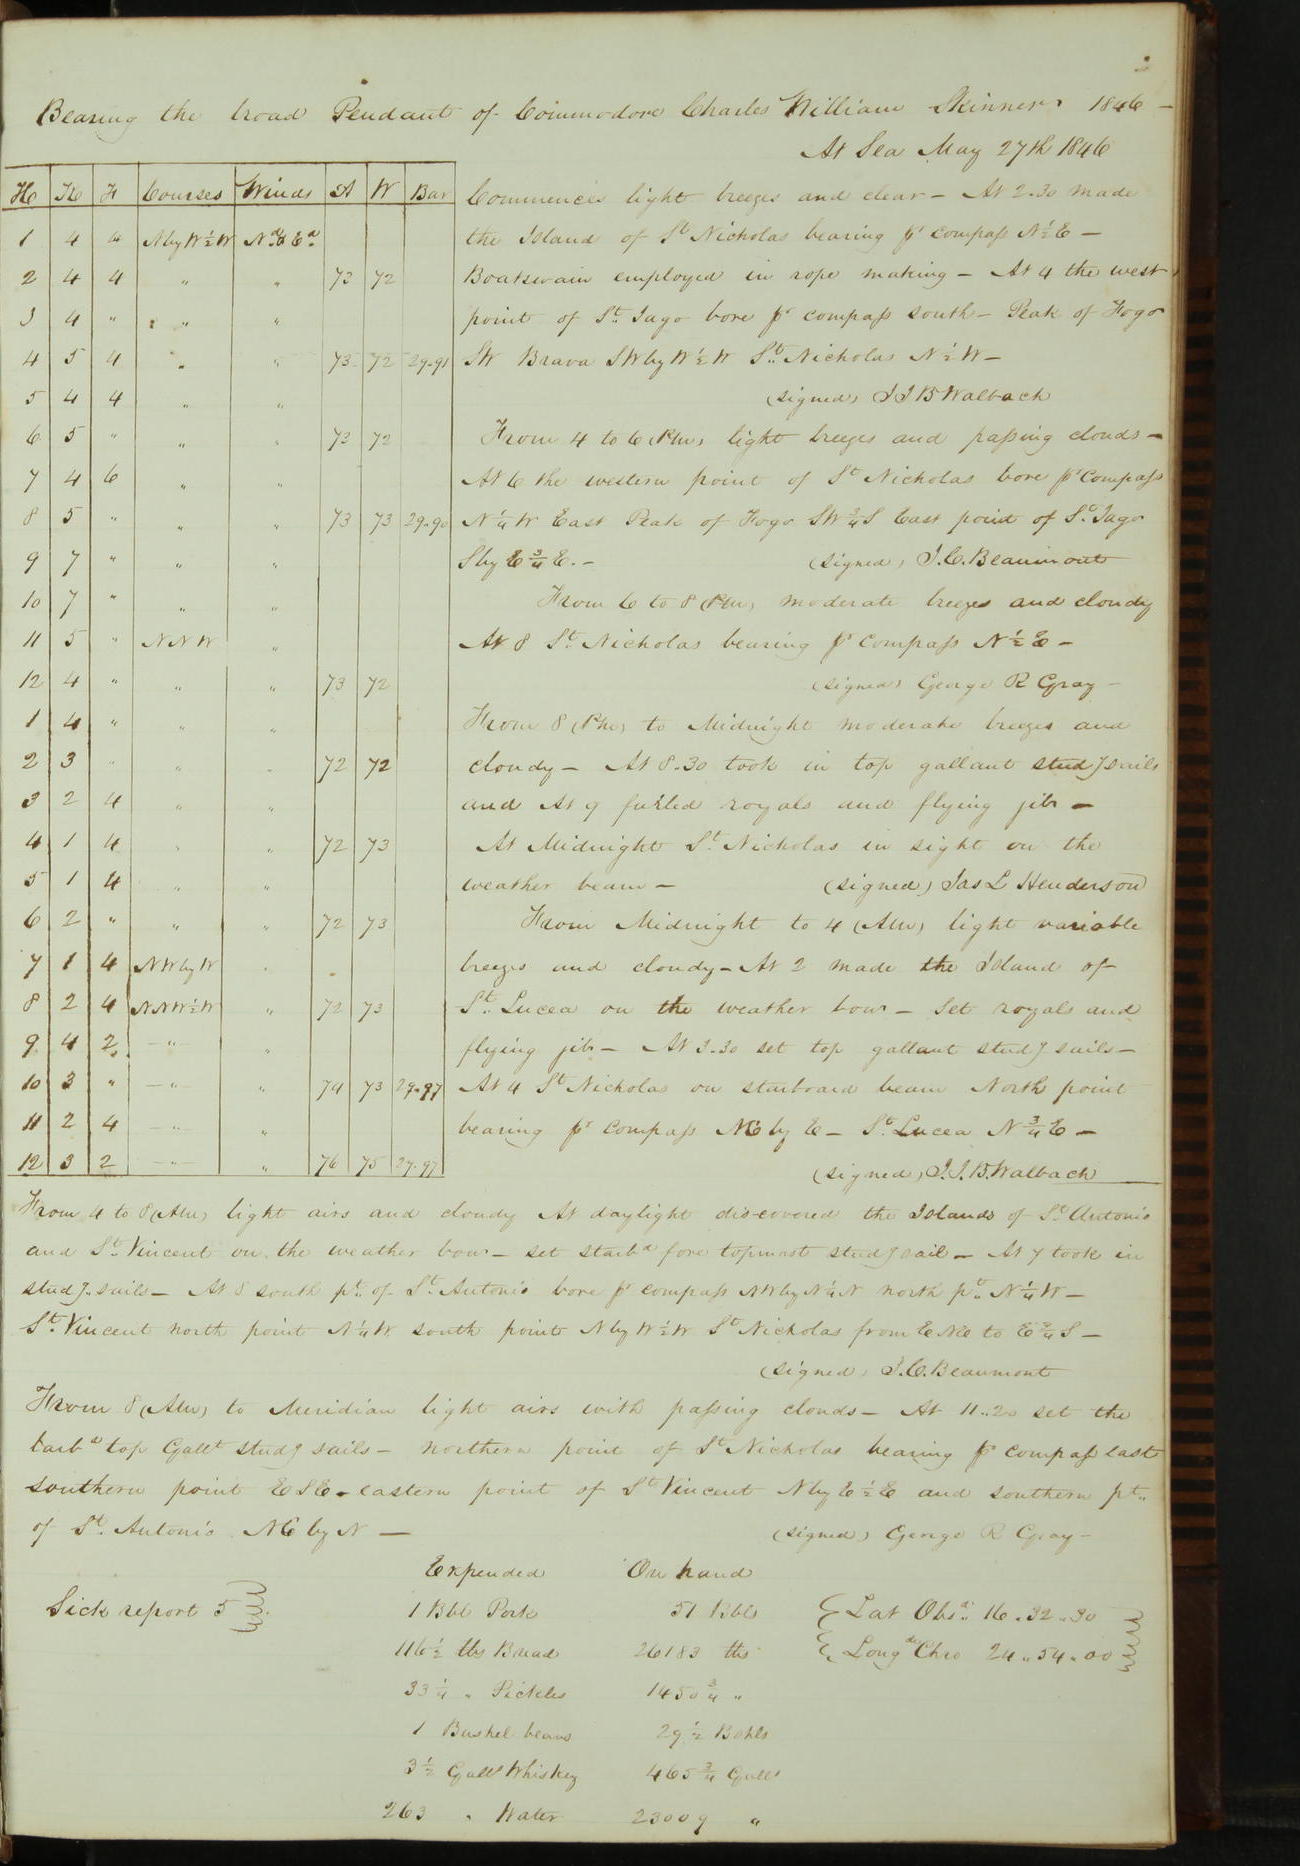 Bearing the broad Pendant of Commodore Charles William Skinner 1846 —
At Sea May 27th 1846
H K F Courses Winds A W Bar
1 4 4 N by W ½ W Nd & Ed
2 4 4 " " 73 72
3 4 " " "
4 5 4 " " 73 72 29.91
5 4 4 " "
6 5 " " " 73 72
7 4 6 " "
8 5 " " " 73 73 29.90
9 7 " " "
10 7 " " "
11 5 " N N W "
12 4 " " " 73 72
1 4 " " "
2 3 " " " 72 72
3 2 4 " "
4 1 4 " " 72 73
5 1 4 " "
6 2 " " " 72 73
7 1 4 NW by W "
8 2 4 NNW ½ W " 72 73
9 4 2 " "
10 3 " " " 74 73 29.97
11 2 4 " "
12 3 2 " " 76 75 29.97
Commences light breezes and clear — At 2.30 made
the Island of St Nicholas bearing pr compass N ½ E —
Boatswain employed in rope making — At 4 the west
point of St Jago bore pr compass south — Peak of Fogo
SW Brava SW by W ½ W St Nicholas N ½ W —
(signed) J J B Walbach
From 4 to 6 (Pm) light breezes and passing clouds —
At 6 the western point of St Nicholas bore pr compass
N ¼ W East Peak of Fogo SW ¾ S East point of St Jago
S by E ¾ E. — (signed) J. C. Beaumont
From 6 to 8 (Pm) moderate breezes and cloudy
At 8 St Nicholas bearing pr compass N ½ E —
(signed) George R Gray —
From 8 (Pm) to Midnight moderate breezes and
cloudy — At 8.30 took in top gallant studg sails
and At 9 furled royals and flying jib —
At Midnight St Nicholas in sight on the
weather beam — (signed) Jas L Henderson
From Midnight to 4 (Am) light variable
breezes and cloudy — At 2 made the Island of
St Lucea on the weather bow — Set royals and
flying jib — At 3.30 set top gallant studg sails —
At 4 St Nicholas on starboard beam North point
bearing pr compass NE by E — St Lucea N ¾ E —
(signed) J. J. B. Walbach
From 4 to 8 (Am) light airs and cloudy At daylight discovered the Islands of St Antonio
and St Vincent on the weather bow — set starbd fore topmast studg sail — At 7 took in
studg sails — At 8 south pt of St Antonio bore pr compass NW by N ¼ N north pt N ¼ W —
St Vincent north point N ¼ W south point N by W ½ W St Nicholas from E NE to E ¾ S —
(signed) J. C. Beaumont
From 8 (Am) to Meridian light airs with passing clouds — At 11.20 set the
larbd top Gallt studg sails — northern point of St Nicholas bearing pr compass East
southern point E S E — eastern point of St Vincent N by E ½ E and southern pt
of St Antonio NE by N — (signed) George R Gray —
Expended On hand
Sick report 5 1 Bbl Pork 51 Bbls Lat Obsd 16..32..30
116 ½ lbs Bread 26183 lbs Long do Chro 24..54..00
33 ¼ " Pickles 1450 ¾ "
1 Bushel beans 29 ½ Bshls
3 ½ Galls Whiskey 465 ¾ Galls
263 " Water 23009 "